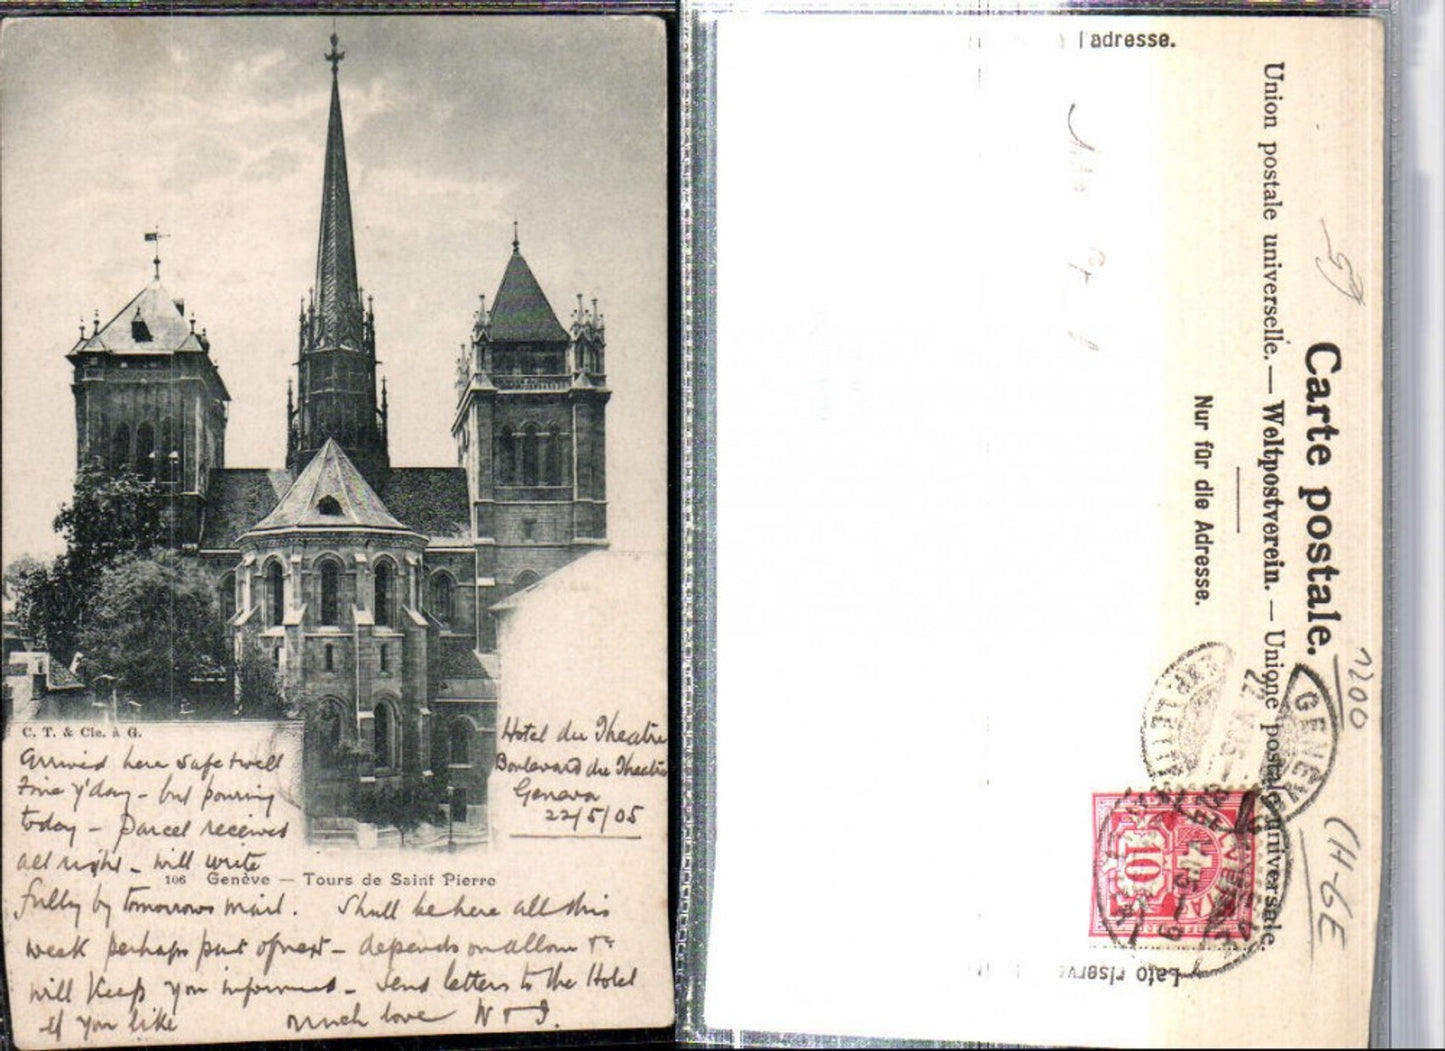 C. T. & Cie. à G.
Hotel du Theatre
Boulevard du Theatre
Geneva
22/5/05
Arrived here safe & well
Fine y'day - but pouring
today - Parcel received
all right - will write
106 Genève — Tours de Saint Pierre
fully by tomorrows mail. Shall be here all this
week perhaps part of next - depends on allom
will keep you informed - send letters to the Hotel
if you like much love W & J.
l'adresse.
Union postale universelle. — Weltpostverein. — Unione postale universale.
Carte postale.
Nur für die Adresse.
Lato riserva
GENÈV
22 V 05
10
7200
CH-GE